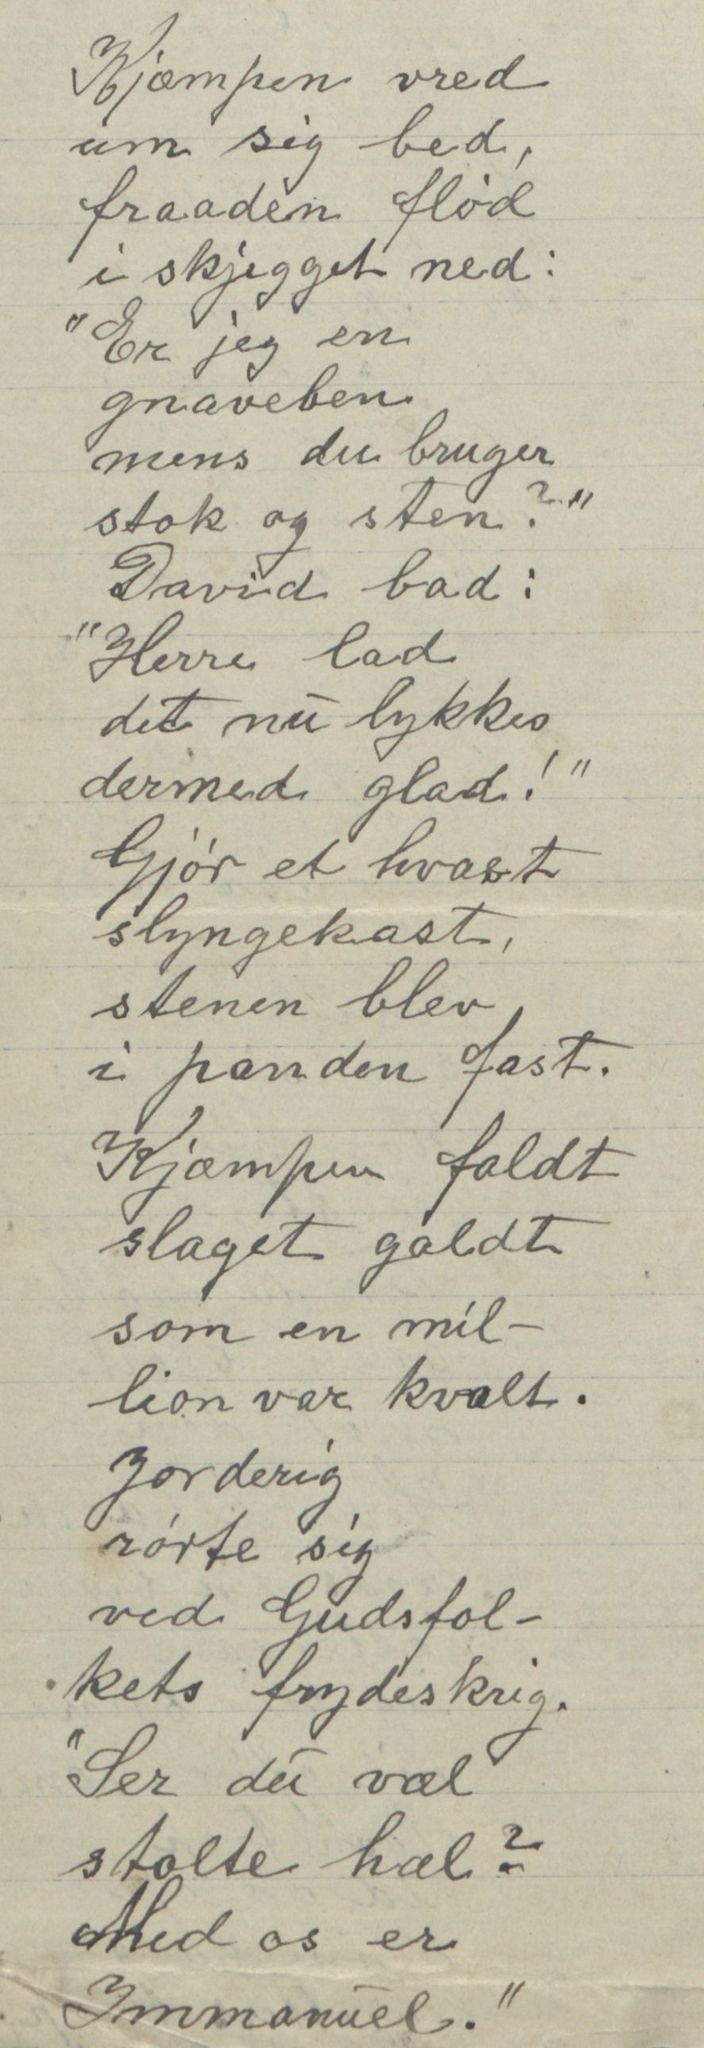 Kjæmpen vred
um sig bed,
fraaden flód
i skjegget ned:
"Er jeg en
gnaveben
mens du bruger
stok og sten?"
David bad:
"Herre lad
det nū lykkes
dermed glad!"
Gjór et hvast
slyngekast,
stenen blev
i panden fast.
Kjæmpen faldt
slaget galdt
som en mil-
lion var kvalt.
Jorderig
rórte sig
ved Gudsfol-
kets frydeskrig.
"Ser dū væl
stolte hæl?
Med os er
Immanūel."